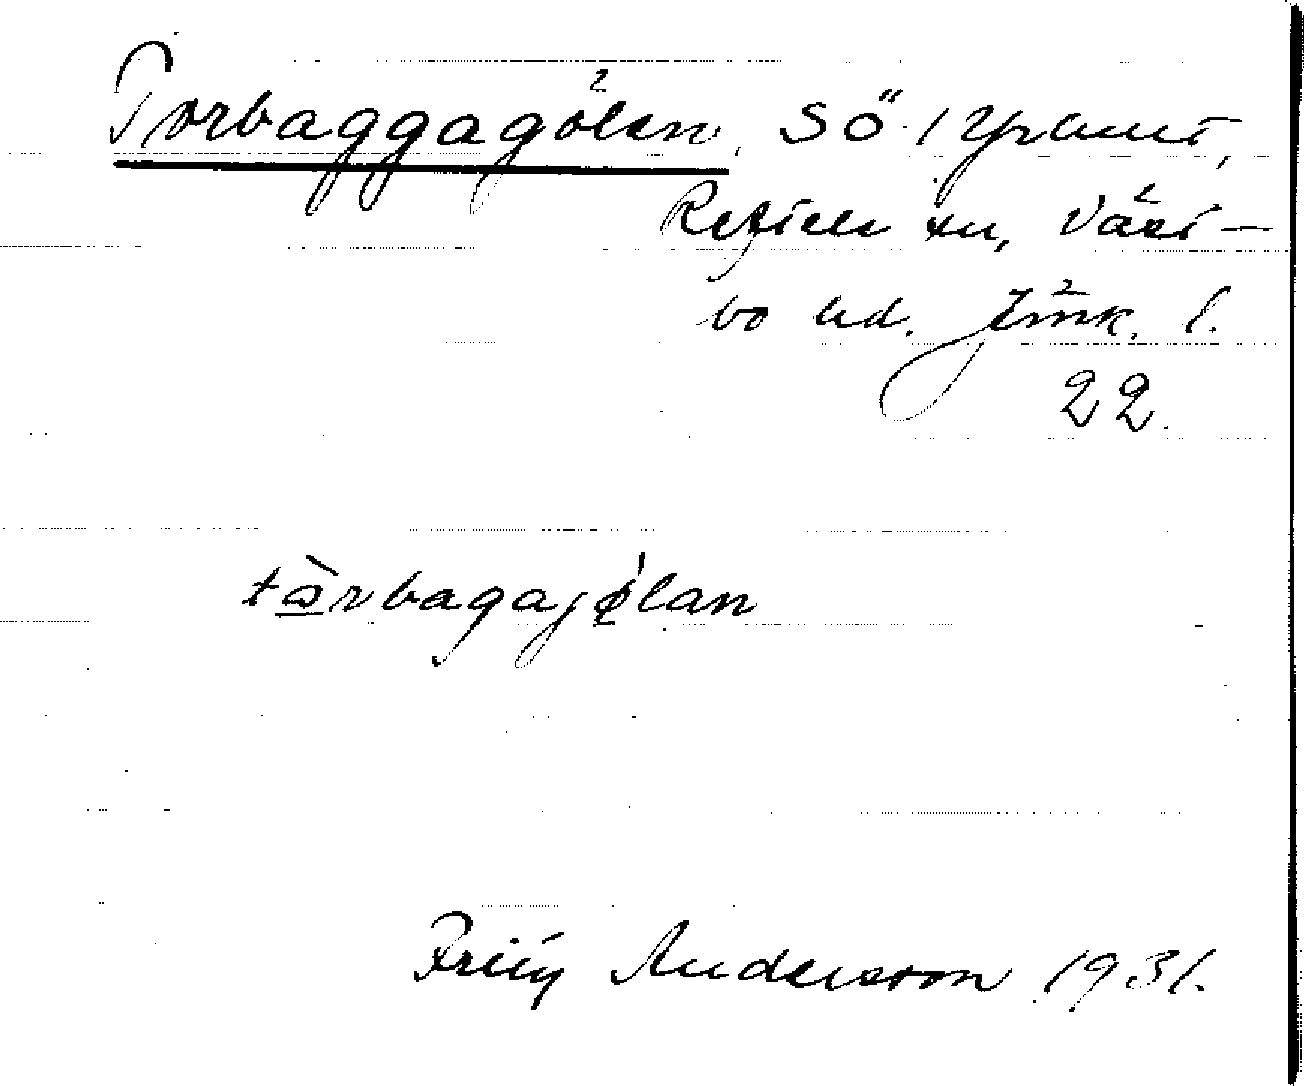 Torbaggagölen, SÖ. i Yxhult,
Reftele sn, Väst-
bo hd. Jönk. l.
22.
tòrbagajǿlan
Prily Andersson 1931.